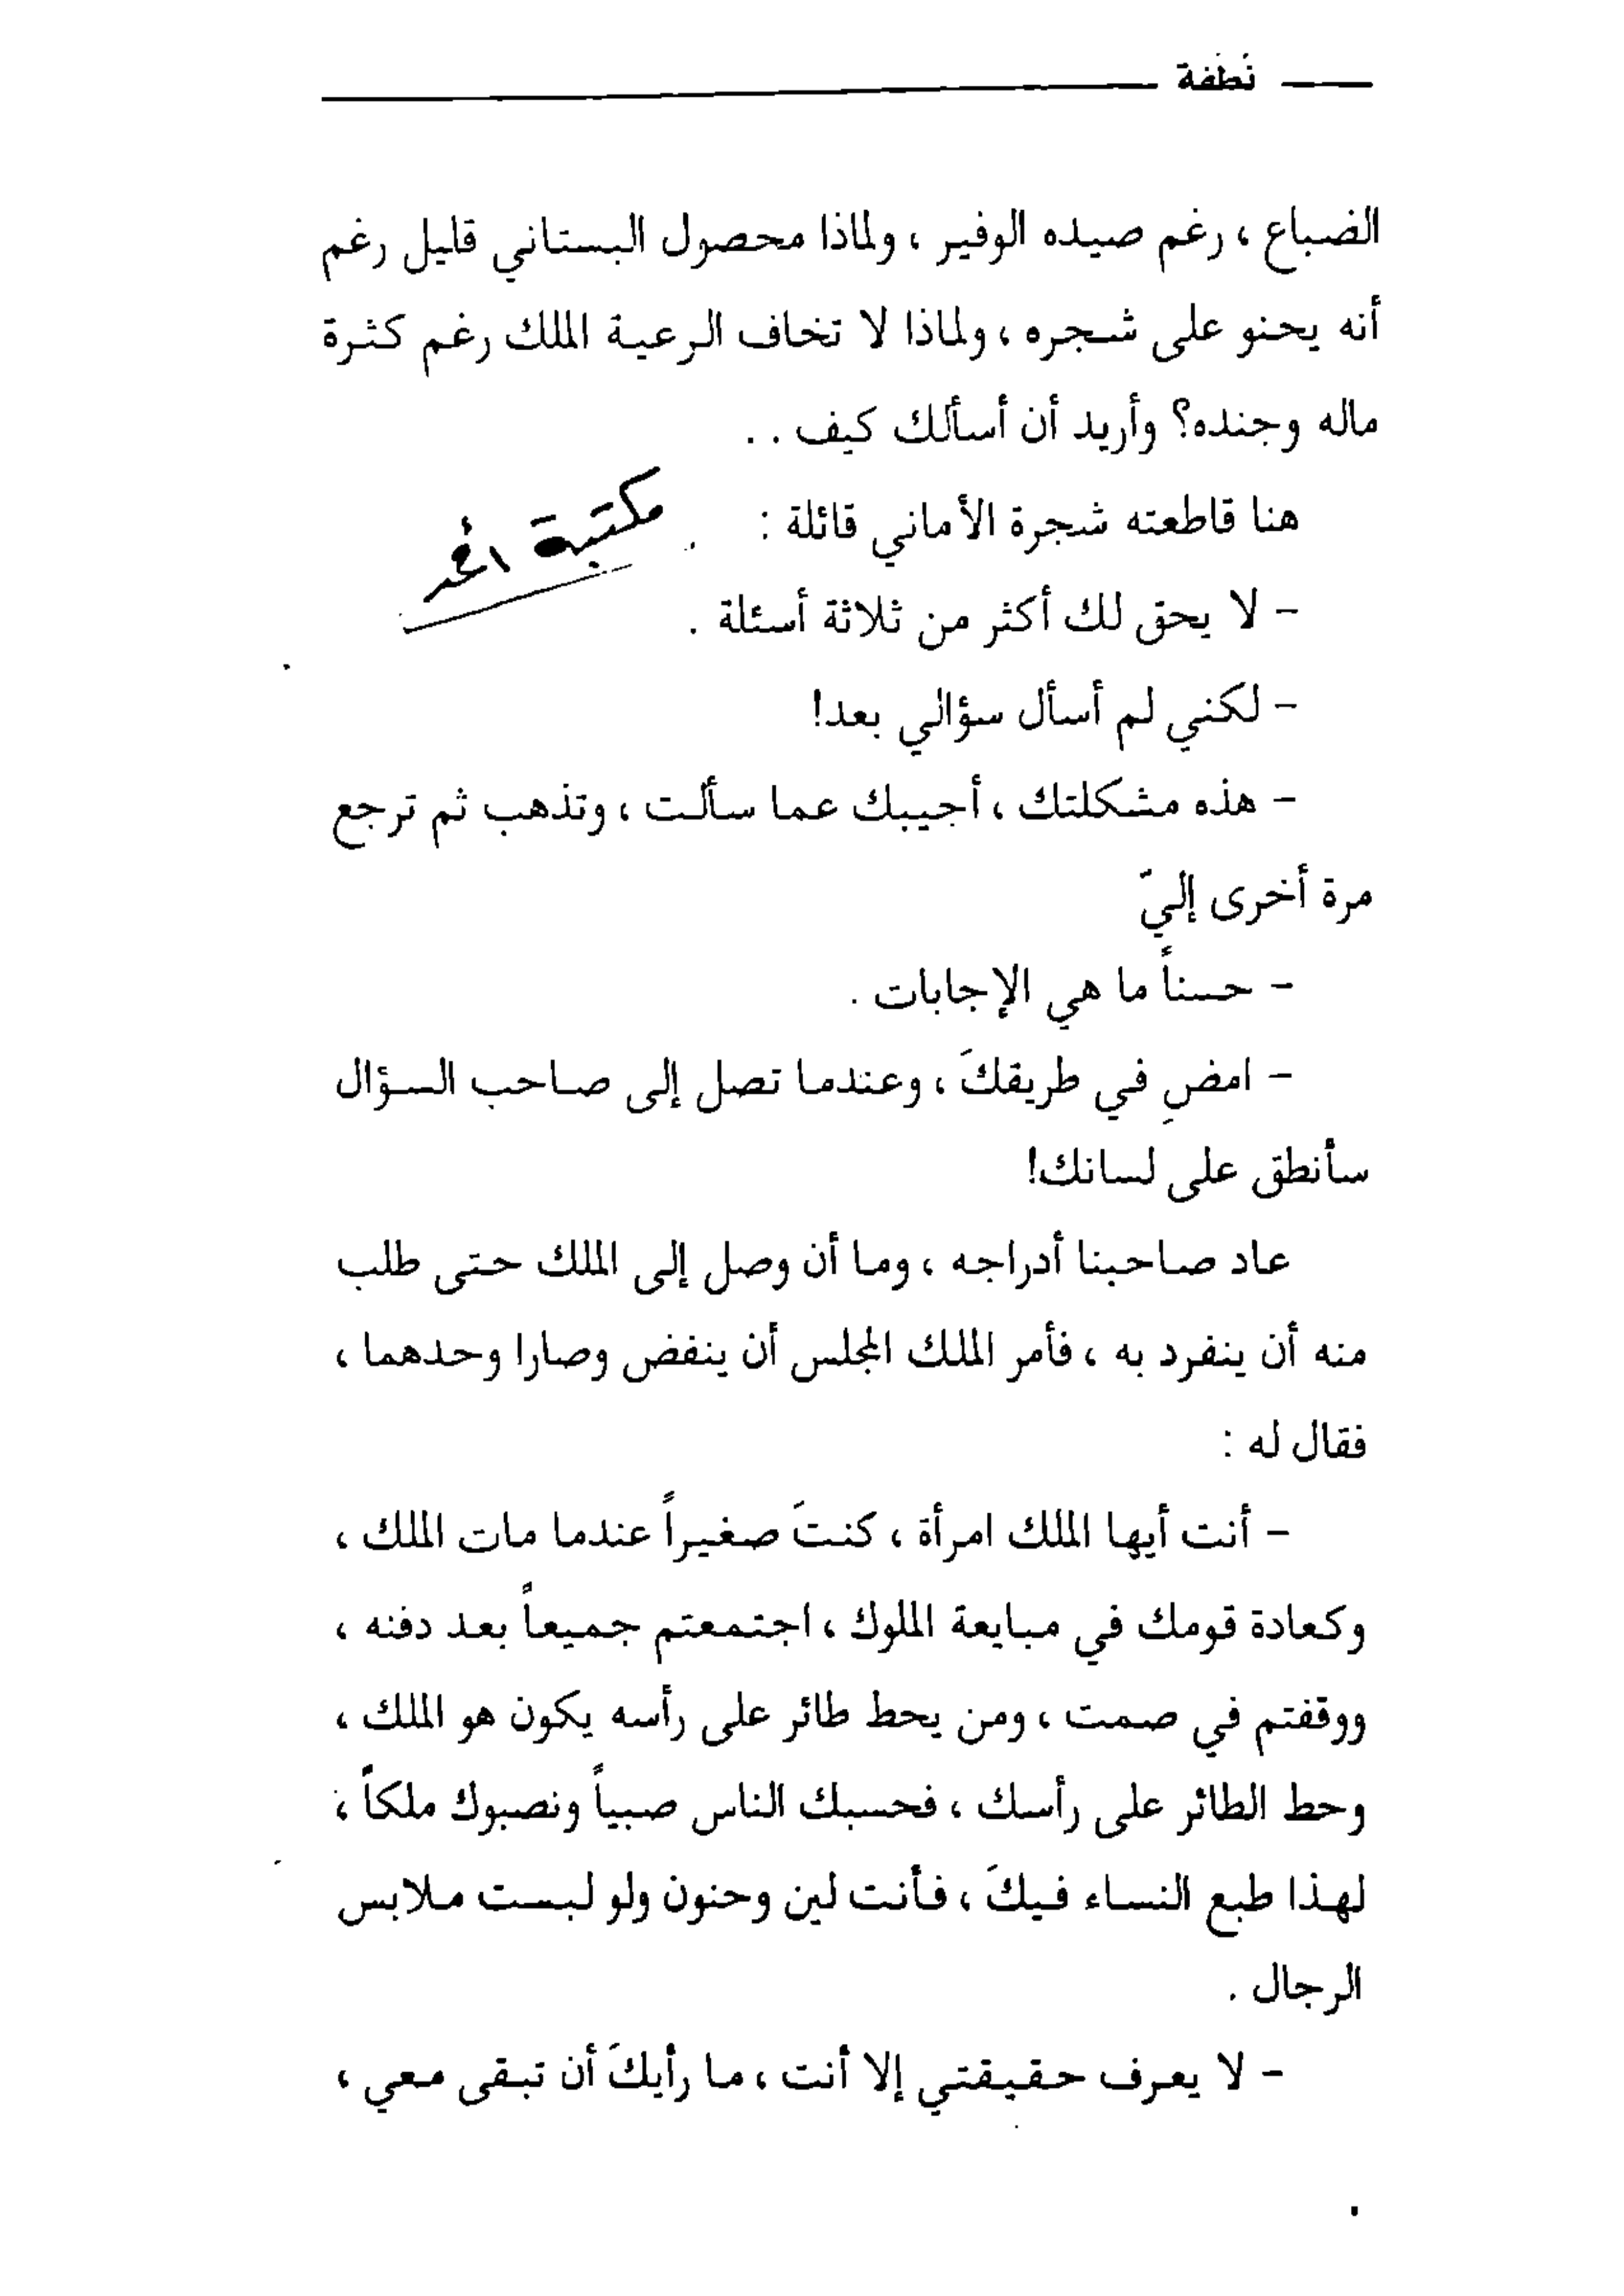 نطفة
الضباع ، رغم صيده الوفير ، ولماذا محصول البستاني قليل رغم
أنه يحنو على شجره ، ولماذا لا تخاف الرعية الملك رغم كثرة
ماله وجنده؟ وأريد أن أسألك كيف . .
هنا قاطعته شجرة الأماني قائلة :
مكتبة أحمد
- لا يحق لك أكثر من ثلاثة أسئلة .
- لكني لم أسأل سؤالي بعد!
- هذه مشكلتك ، أجيبك عما سألت ، وتذهب ثم ترجع
مرة أخرى إليّ
- حسناً ما هي الإجابات .
- امضِ في طريقكَ ، وعندما تصل إلى صاحب السؤال
سأنطق على لسانك!
عاد صاحبنا أدراجه ، وما أن وصل إلى الملك حتى طلب
منه أن ينفرد به ، فأمر الملك المجلس أن ينفض وصارا وحدهما ،
فقال له :
- أنت أيها الملك امرأة ، كنتَ صغيراً عندما مات الملك ،
وكعادة قومك في مبايعة الملوك ، اجتمعتم جميعاً بعد دفنه ،
ووقفتم في صمت ، ومن يحط طائر على رأسه يكون هو الملك ،
وحط الطائر على رأسك ، فحسبك الناس صبياً ونصبوك ملكاً ،
لهذا طبع النساء فيكَ ، فأنت لين وحنون ولو لبست ملابس
الرجال .
- لا يعرف حقيقتي إلا أنت ، ما رأيكَ أن تبقى معي ،